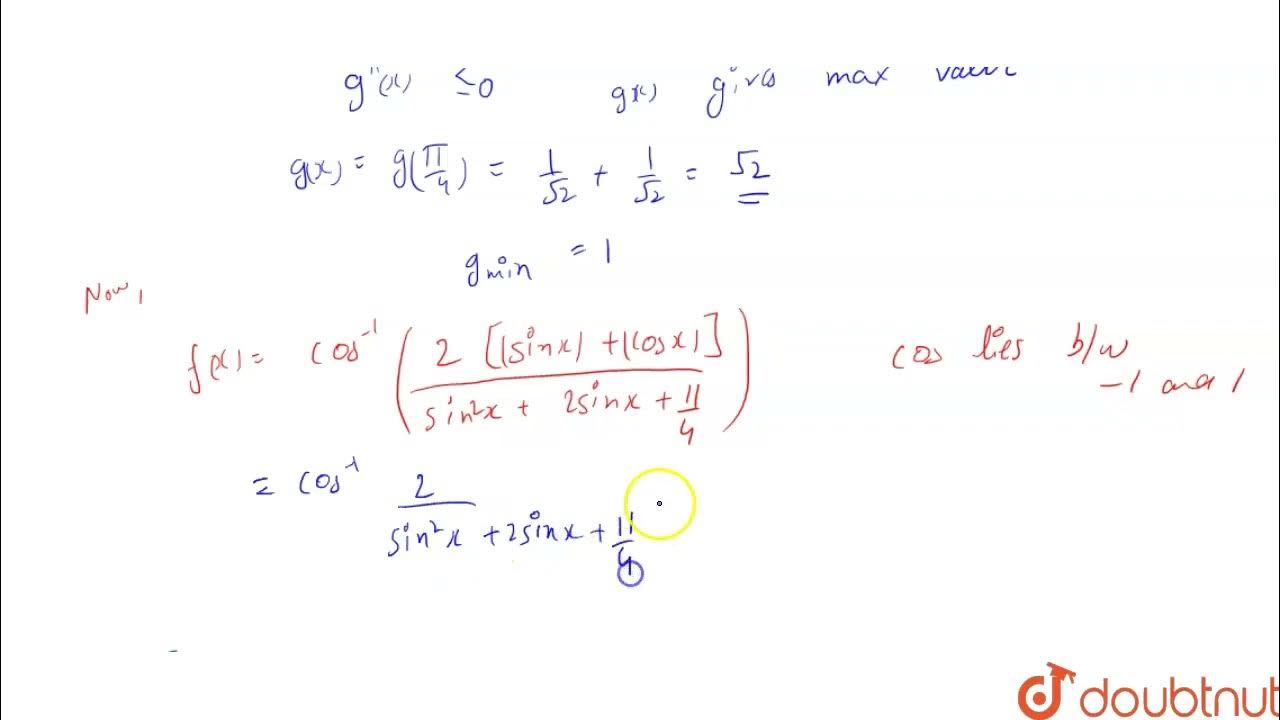 g''(x) ≤0 g(x) gives max value
g(x) = g(π/4) = 1/√2 + 1/√2 = √2
g min = 1
Now,
f(x) = cos⁻¹ (2 [(sinx) + (cosx)] / sin²x + 2sinx + 11/4) cos lies b/w
-1 and 1
= cos⁻¹ 2 / sin²x + 2sinx + 11/4
doubtnut